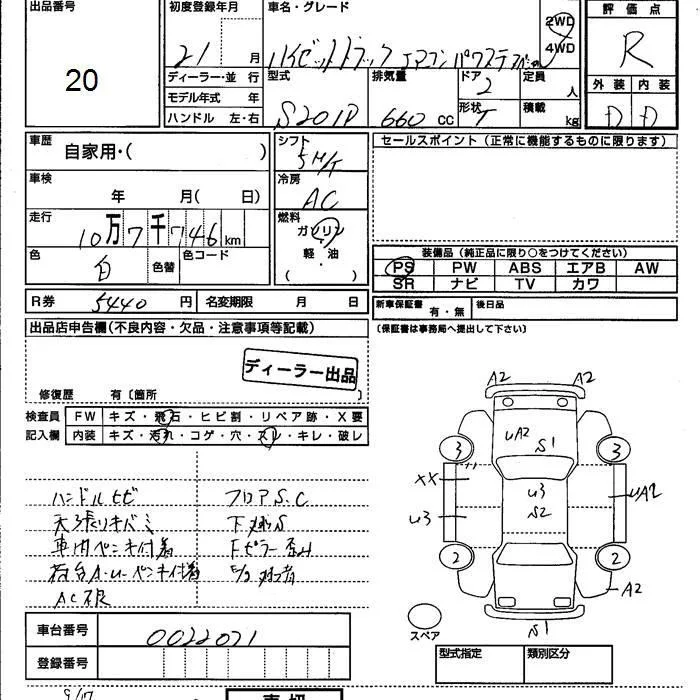 出品番号
20
初度登録年月
21 月
車名・グレード
ハイゼットトラック エアコンパワステスペシャル
2WD
4WD
評価点
R
外装 内装
D D
ディーラー・並 行
モデル年式 年
ハンドル 左・右
型式
S201P
排気量
660 cc
ドア
2
形状
T
定員
人
積載
kg
車歴
自家用・( )
車検
年 月( 日)
走行
10万7千746km
色
白
色替
色コード
シフト
5M/T
冷房
AC
燃料
ガソリン
軽・油
( )
セールスポイント(正常に機能するものに限ります)
装備品(純正品に限り○をつけてください)
PS PW ABS エアB AW
SR ナビ TV カワ
R券 5440 円 名変期限 月 日
新車保証書 有・無 後日品
(保証書は事務局へ提出して下さい)
出品店申告欄(不良内容・欠品・注意事項等記載)
ディーラー出品
修復歴 有〔箇所 〕
検査員
記入欄
FW キズ・飛石・ヒビ割・リペア跡・X要
内装 キズ・汚れ・コゲ・穴・スレ・キレ・破レ
ハンドルヒビ フロアS.C
天張りキバミ 下廻りS
車内ペンキ付着 Fピラー歪み
荷台A・U・ペンキ付着
AC不良
A2 A2
UA2 S1
3 3
XX
U3
U3
S2
UA2
2 2
A2
S1
スペア
車台番号 0022071
登録番号
型式指定 類別区分
9/17